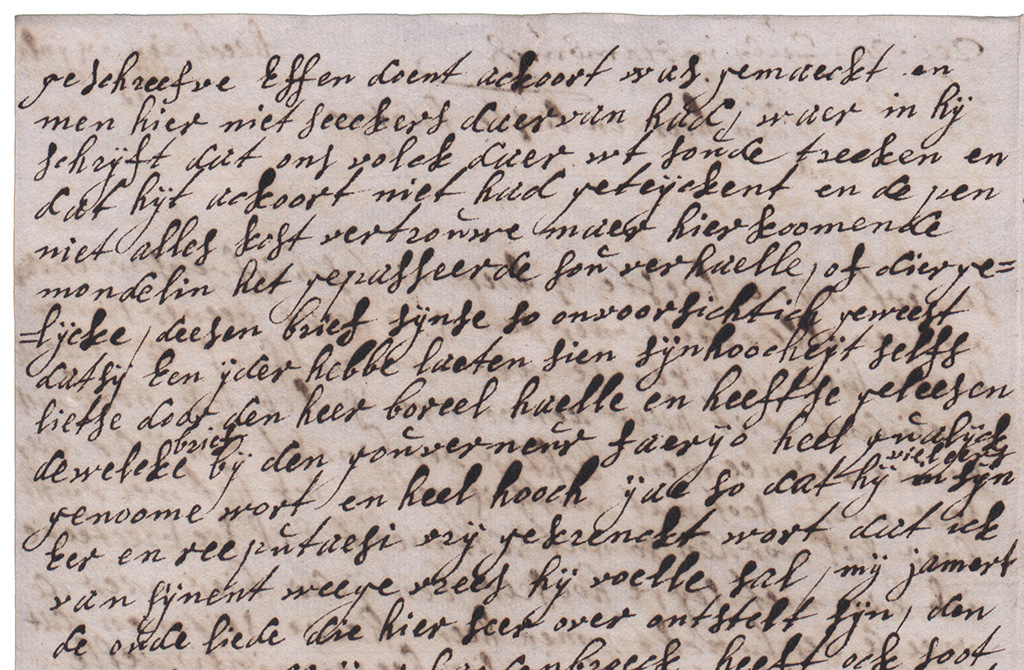 geschreefve Effen doent ackoort was gemaeckt en
men hier niet seeckers daervan had, waer in hij
schrijft dat ons volck daer wt soude trecken en
dat hijt ackoort niet had geteijckent en de pen
niet alles kost vertrouwe maer hierkoomende
mondelin het gepasseerde sou verhaelle, of dierge=
=lijcke, deesen brief sijnse so onvoorsichtich geweest
datsij Een ijder hebbe laeten sien sijnhoocheijt selfs
lietse door den heer boreel haelle en heeftse geleesen
deweleke brief bij den gouverneur faerijo heel qualijck
genoome wort en heel hooch ijae so dat hij sijn
Eer en reeputaesi vrij gekrenckt wort dat ick
van sijnent weege vrees hij voelle sal, mij jamert
de oude liede die hier seer over ontstelt sijn, den
heeft ock soot